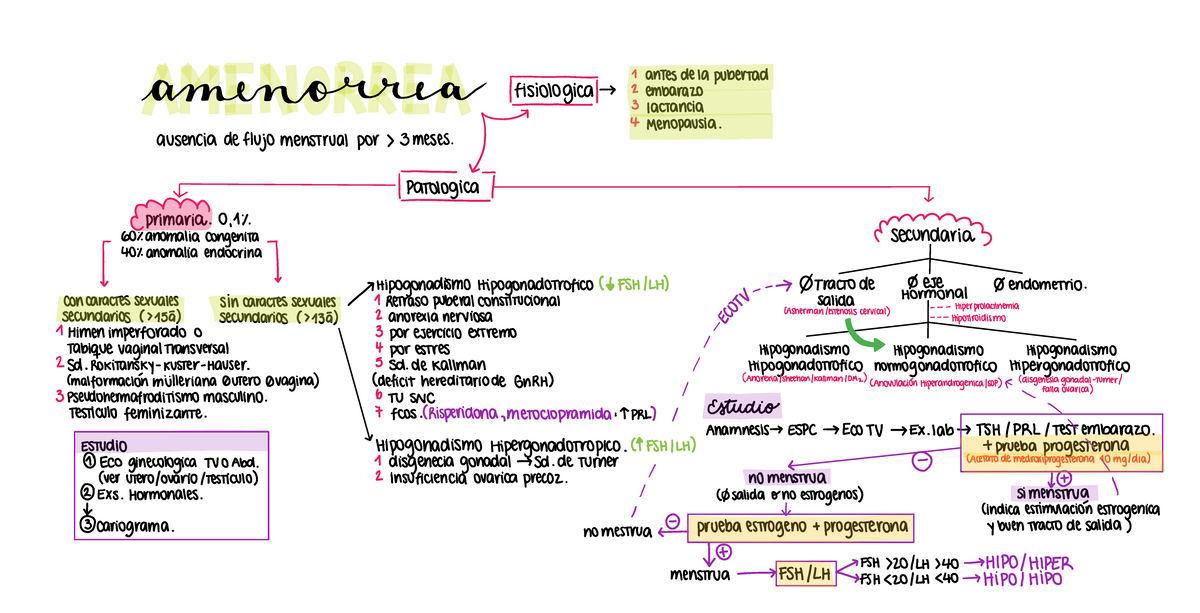 AMENORREA
amenorrea
ausencia de flujo menstrual por > 3 meses.
fisiologica →
1 antes de la pubertad
2 embarazo
3 lactancia
4 Menopausia.
Patologica
primaria. 0,1%.
60% anomalia congenita
40% anomalía endocrina
con caractes sexuales
secundarios (>15a)
1 Himen imperforado o
Tabique vaginal Transversal
2 Sd. Rokitansky-Kuster-Hauser.
(malformación mülleriana Øutero Øvagina)
3 Pseudohermafroditismo masculino.
Testículo feminizante.
ESTUDIO
① Eco ginecologica TV o Abd.
(ver útero/ovario/testículo)
② Exs. Hormonales.
③ Cariograma.
Sin caractes sexuales
secundarios (>13a)
Hipogonadismo Hipogonadotrofico (↓FSH/LH)
1 Retraso puberal constitucional
2 anorexia nerviosa
3 por ejercicio extremo
4 por estres
5 Sd. de Kallman
(deficit hereditario de GnRH)
6 TU SNC
7 fcos. (Risperidona, metoclopramida · ↑PRL)
Hipogonadismo Hipergonadotropico. (↑FSH/LH)
1 disgenecia gonadal → Sd. de Turner
2 Insuficiencia ovarica precoz.
Secundaria
Ø Tracto de
salida
(Asherman/estenosis cervical)
Ø eje
Hormonal
Hiperprolactinemia
Hipotiroidismo
Ø endometrio.
ECOTV
Hipogonadismo
Hipogonadotrofico
(Anorexia/sheehan/kallman/DM2)
Hipogonadismo
normogonadotrofico
(Anovulación Hiperandrogenica/SOP)
Hipogonadismo
Hipergonadotrofico
(disgenesia gonadal-Turner/
falla ovarica)
Estudio
Anamnesis → ESPC → Eco TV → Ex. lab → TSH / PRL / TEST embarazo.
+ prueba progesterona
(Acetato de medroxiprogesterona 10 mg/dia)
no menstrua
(Ø salida o no estrogenos)
si menstrua
(indica estimulación estrogenica
y buen Tracto de salida)
no mestrua
prueba estrogeno + progesterona
menstrua
FSH/LH
FSH >20/LH >40 → HIPO/HIPER
FSH <20/LH <40 → HIPO/HIPO